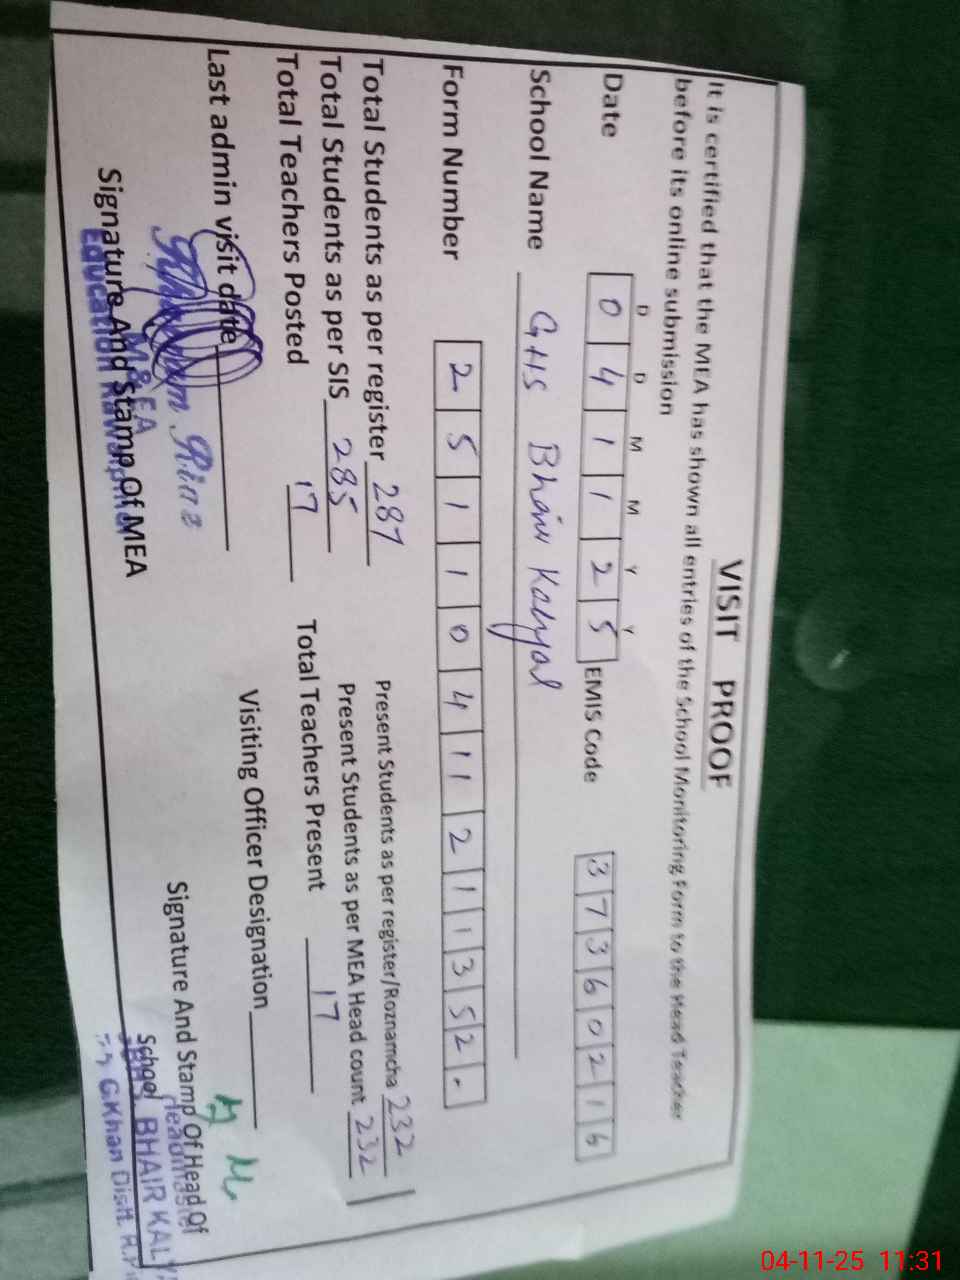 VISIT PROOF
It is certified that the MEA has shown all entries of the School Monitoring Form to the Head Teacher
before its online submission
D D M M Y Y
Date 0 4 1 1 2 5 EMIS Code 3 7 3 6 0 2 1 6
School Name GHS Bhair Kalyal
Form Number 2 5 1 1 0 4 1 1 2 1 1 3 5 2 .
Total Students as per register 287 Present Students as per register/Roznamcha 232
Total Students as per SIS 285 Present Students as per MEA Head count 232
Total Teachers Posted 17 Total Teachers Present 17
Last admin visit date Visiting Officer Designation
Signature And Stamp Of MEA
M&EA
Education Rawalpindi
Signature And Stamp Of Head Of
School
Headmaster
BHAIR
G.Khan Distt.
04-11-25 11:31